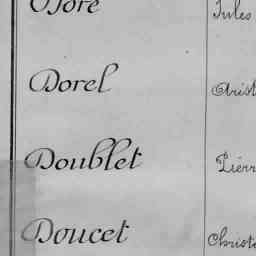 Doré Jules
Dorel Arist
Doublet Pierr
Doucet Christ